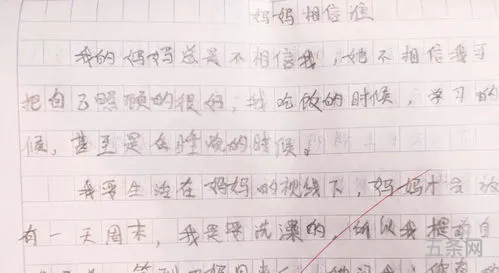 妈妈相信谁
我的妈妈总是不相信我,她不相信我可
把自己照顾的很好,我吃饭的时候,学习的
候,甚至是在睡觉的时候。
我要生活在妈妈的视线下,妈妈才会放
有一天周末,我是要洗澡的,所以我提前自
五条网